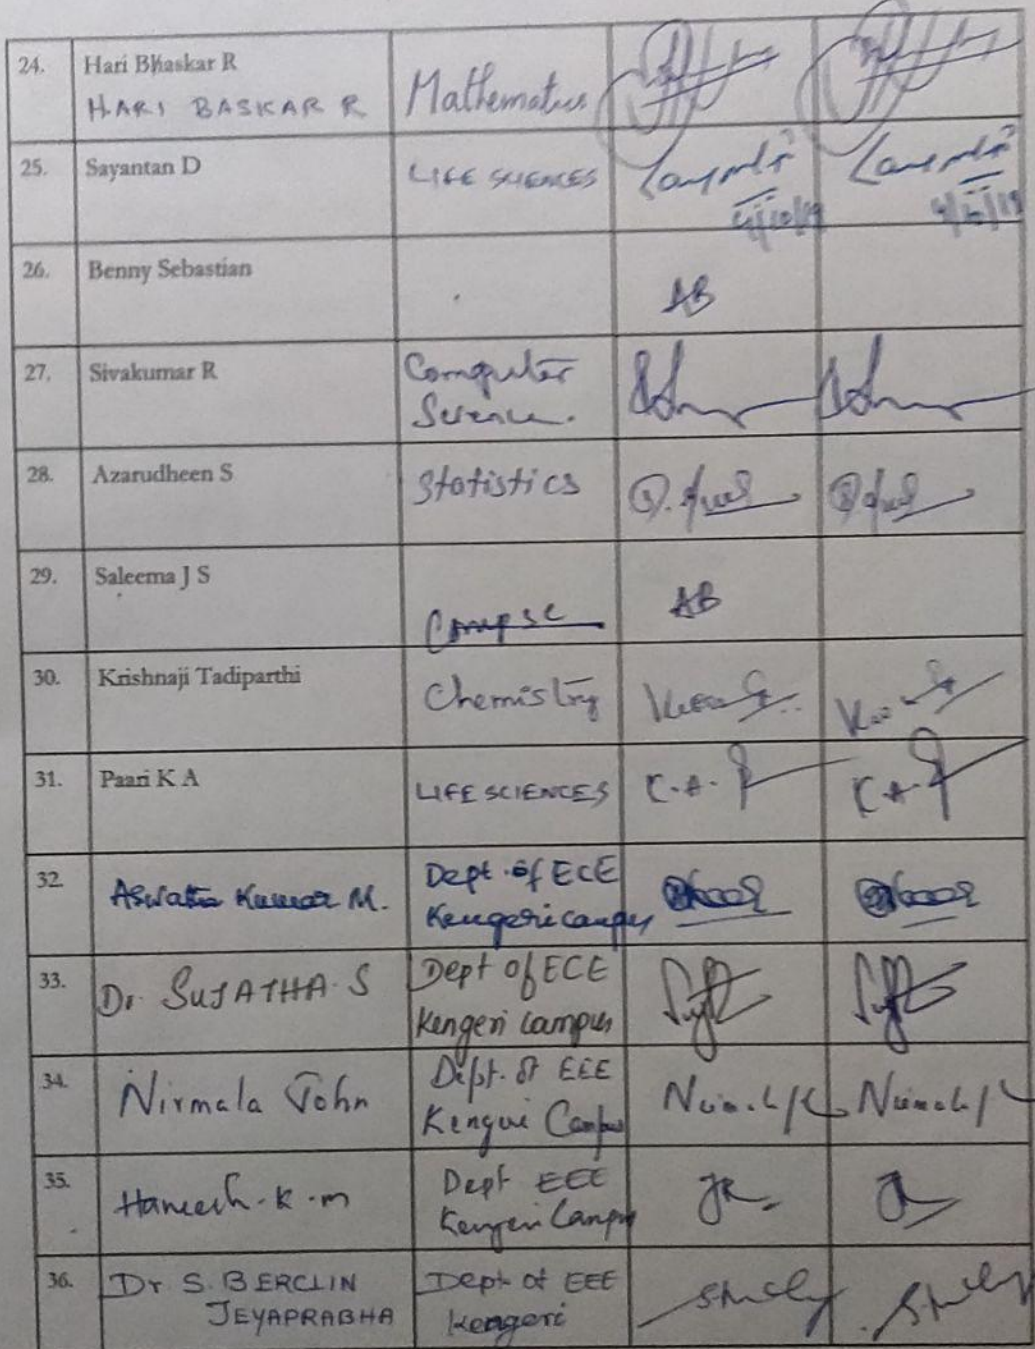 24. Hari Bhaskar R
HARI BASKAR R Mathematics
25. Sayantan D LIFE SCIENCES
4/10/19 4/10/19
26. Benny Sebastian
AB
27. Sivakumar R Computer
Science.
28. Azarudheen S Statistics
29. Saleema J S AB
Comp sc
30. Krishnaji Tadiparthi Chemistry
31. Paari K A LIFE SCIENCES K.A. K A
32. Aswatha Kumar M. Dept. of ECE
Kengeri campus
33. Dr. SUJATHA S Dept of ECE
Kengeri campus
34. Nirmala John Dept. of EEE
Kengeri Campus
35. K.M Dept EEE
Kengeri Campus
36. Dr S. BERCLIN Dept of EEE
JEYAPRABHA Kengeri